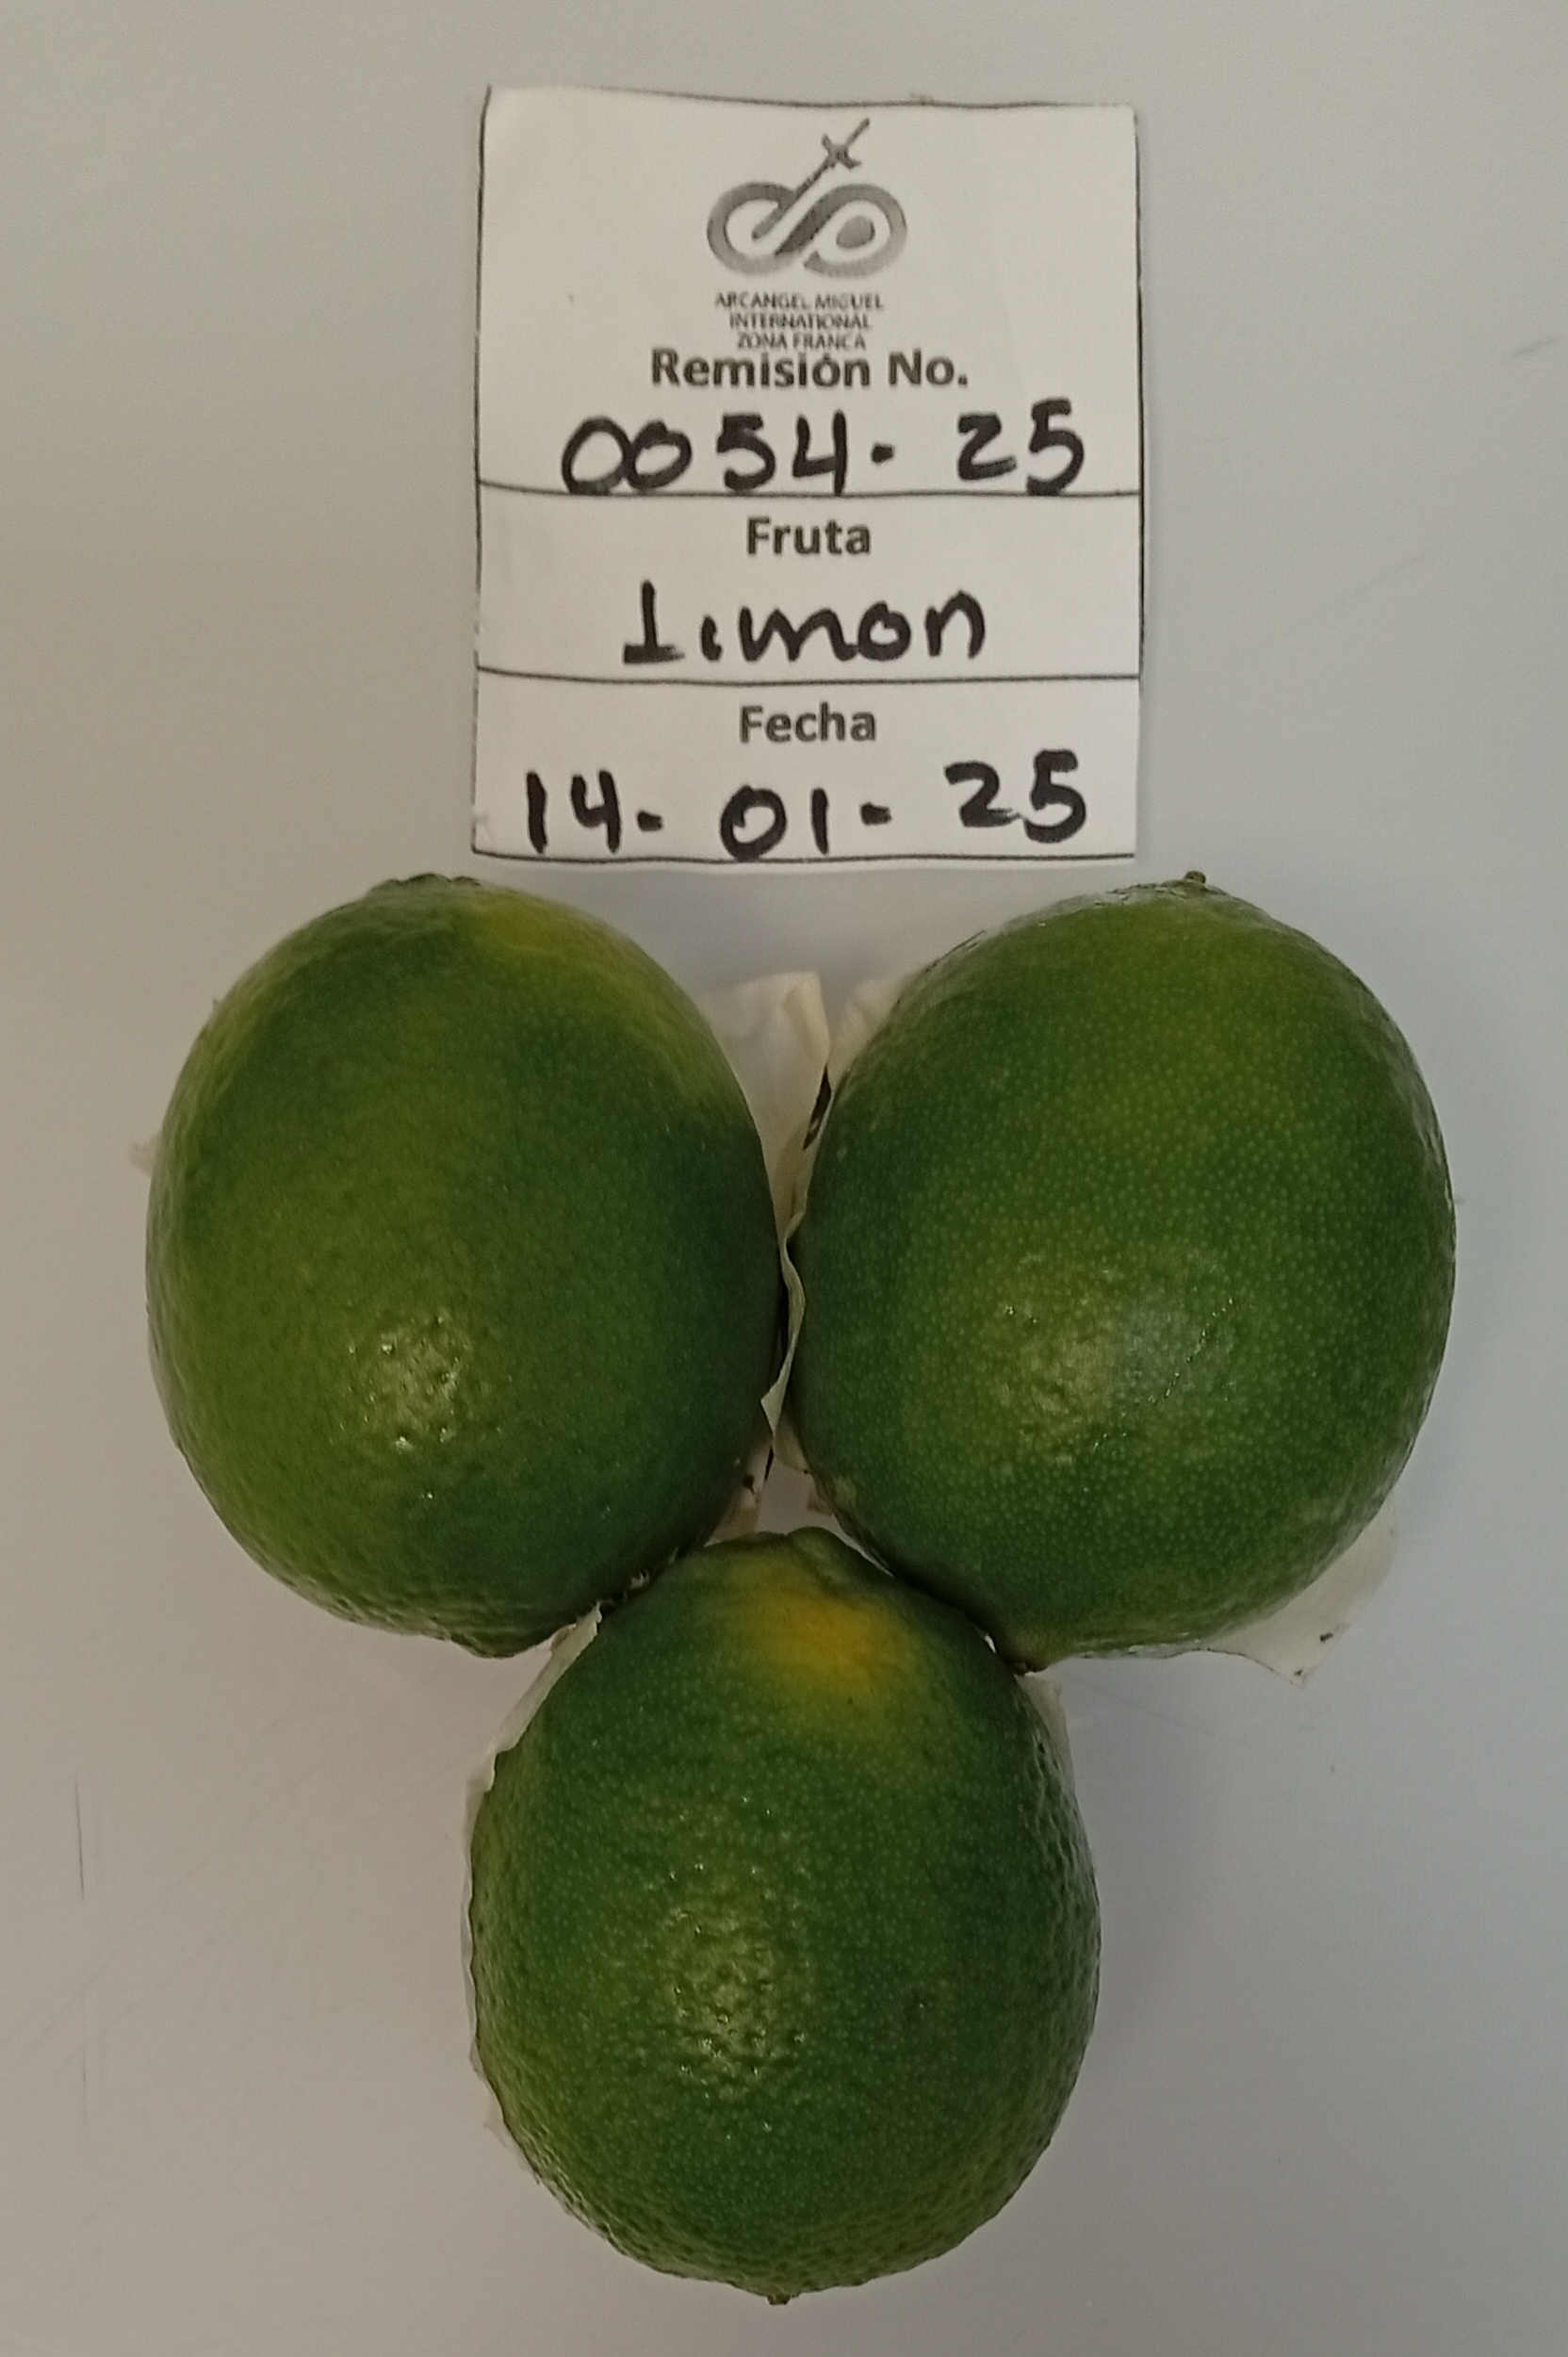 ARCANGEL MIGUEL
INTERNATIONAL
ZONA FRANCA
Remisión No.
0054-25
Fruta
Limon
Fecha
14-01-25